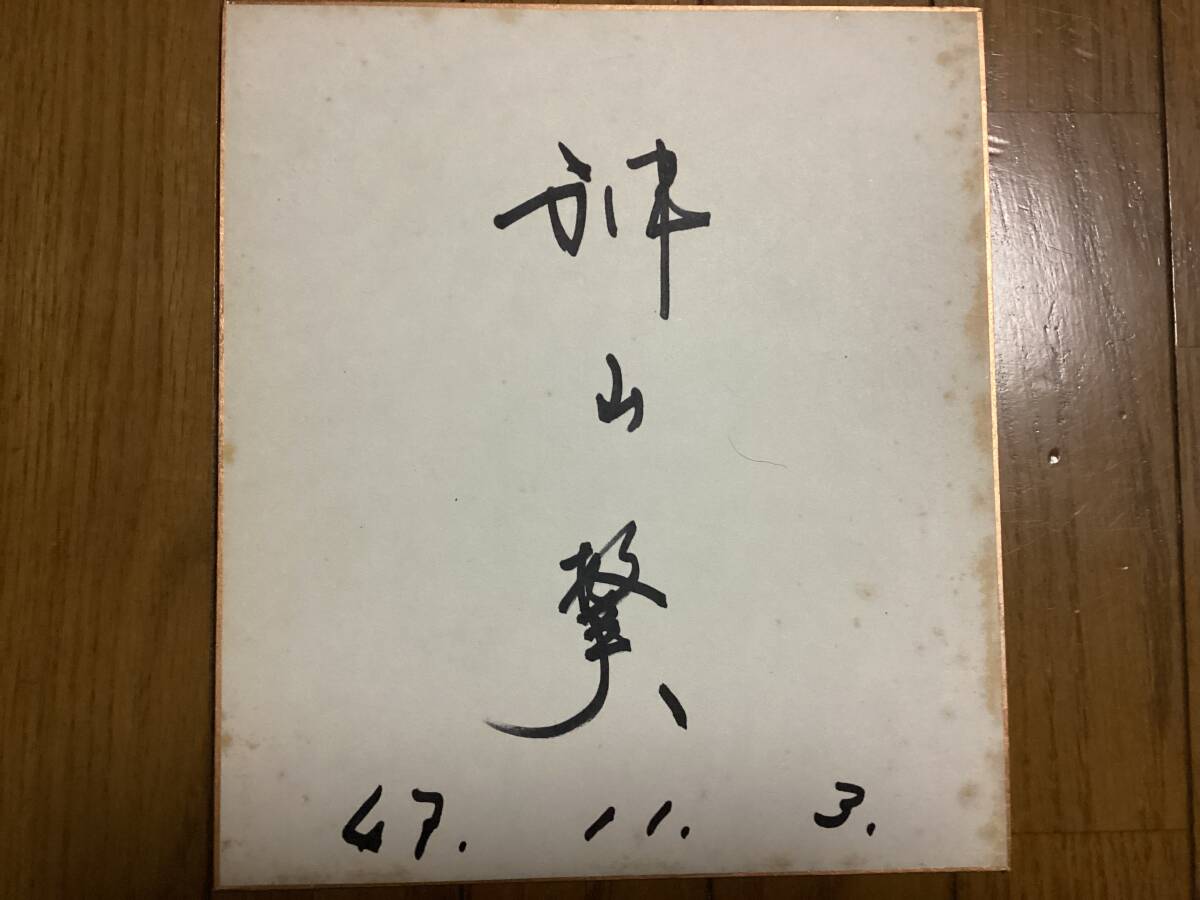 神山繁
47. 11. 3.